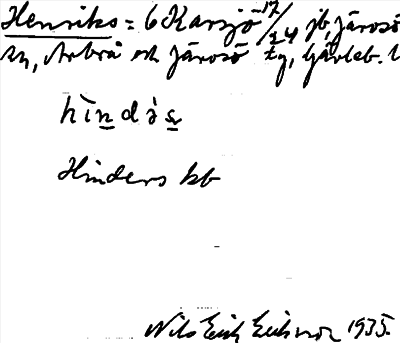 Henriks = 6 Karsjö 17/24 jb, Järvsö
sn, Arbrå och Järvsö tg, Gävleb. l
hìndàs
Hinders kb
Nils Erik Eriksson 1935.